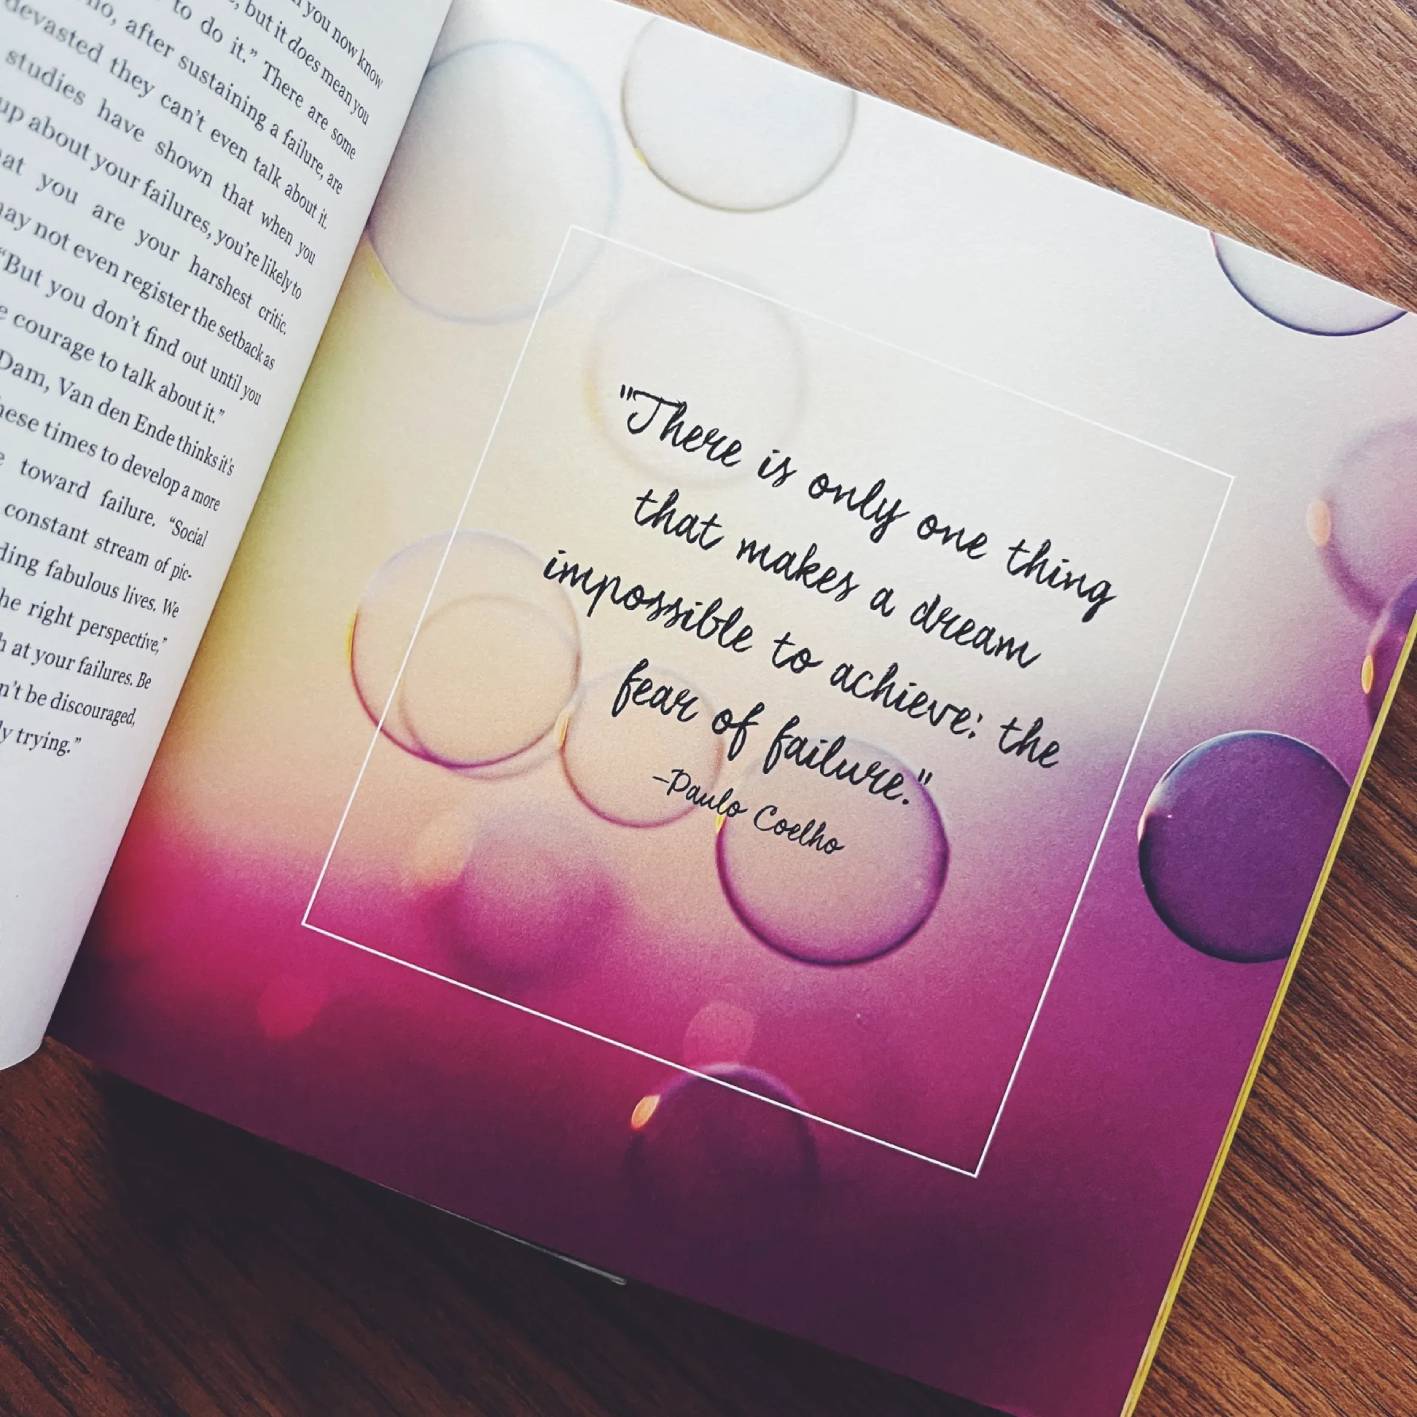 you now know
, but it does mean you
to do it.” There are some
no, after sustaining a failure, are
devasted they can’t even talk about it.
studies have shown that when you
up about your failures, you’re likely to
you are your harshest critic.
may not even register the setback as
“But you don’t find out until you
courage to talk about it.”
Dam, Van den Ende thinks it’s
these times to develop a more
toward failure. “Social
constant stream of pic-
fabulous lives. We
the right perspective,”
at your failures. Be
be discouraged,
trying.”
"There is only one thing
that makes a dream
impossible to achieve: the
fear of failure."
–Paulo Coelho